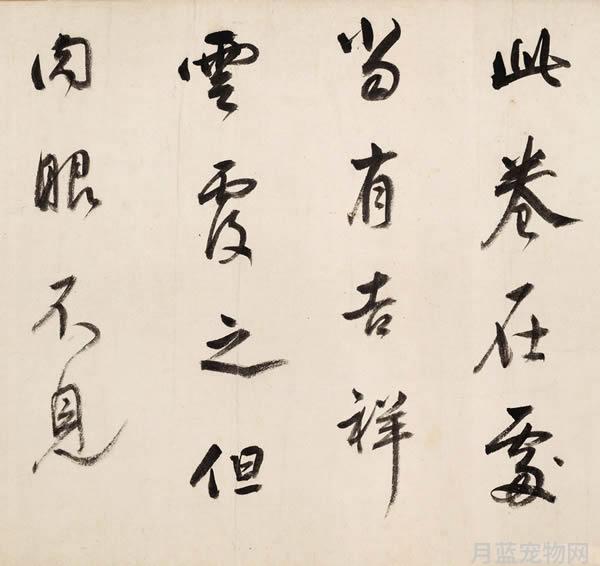 此卷在處
当有吉祥
雲覆之但
肉眼不見
月蓝宠物网